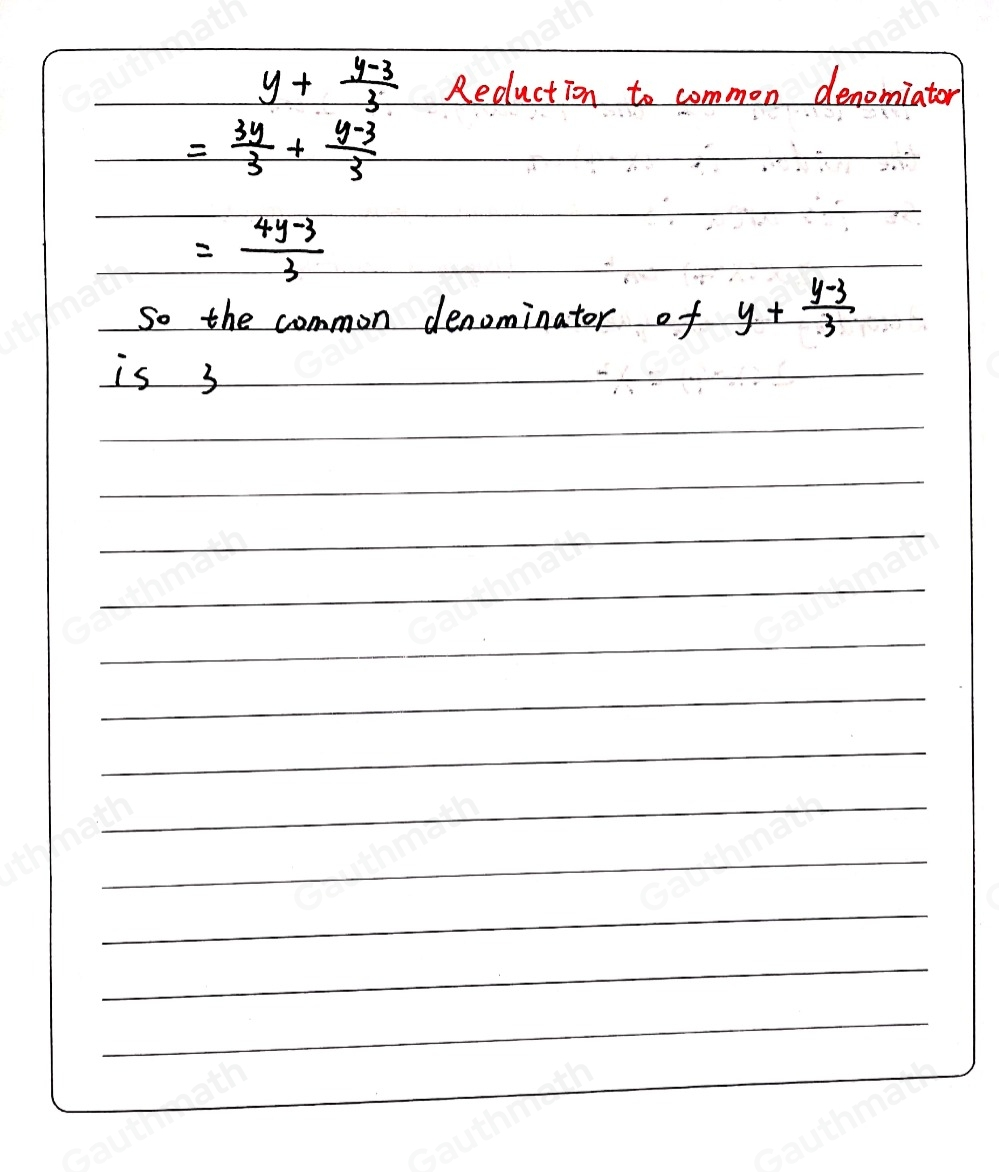 y + \frac{y-3}{3} Reduction to common denomiator
= \frac{3y}{3} + \frac{y-3}{3}
= \frac{4y-3}{3}
So the common denominator of y + \frac{y-3}{3}
is 3
Gauthmath